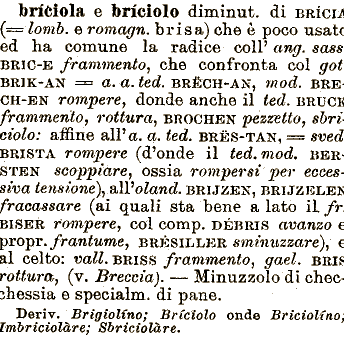 bríciola e bríciolo diminut. di BRÍCIA
(= lomb. e romagn. brisa) che è poco usato
ed ha comune la radice coll' ang. sass.
BRIC-E frammento, che confronta col got.
BRIK-AN = a. a. ted. BRËCH-AN, mod. BRE-
CH-EN rompere, donde anche il ted. BRUCK
frammento, rottura, BROCHEN pezzetto, sbri-
ciolo: affine all' a. a. ted. BRËS-TAN, = sved.
BRISTA rompere (d'onde il ted. mod. BER-
STEN scoppiare, ossia rompersi per ecces-
siva tensione), all'oland. BRIJZEN, BRIJZELEN
fracassare (ai quali sta bene a lato il fr.
BISER rompere, col comp. DÉBRIS avanzo e
propr. frantume, BRÉSILLER sminuzzare), e
al celto: vall. BRISS frammento, gael. BRIS
rottura, (v. Breccia). — Minuzzolo di chec-
chessia e specialm. di pane.
Deriv. Brigiolíno; Brícíolo onde Briciolíno;
Imbriciolàre; Sbriciolàre.